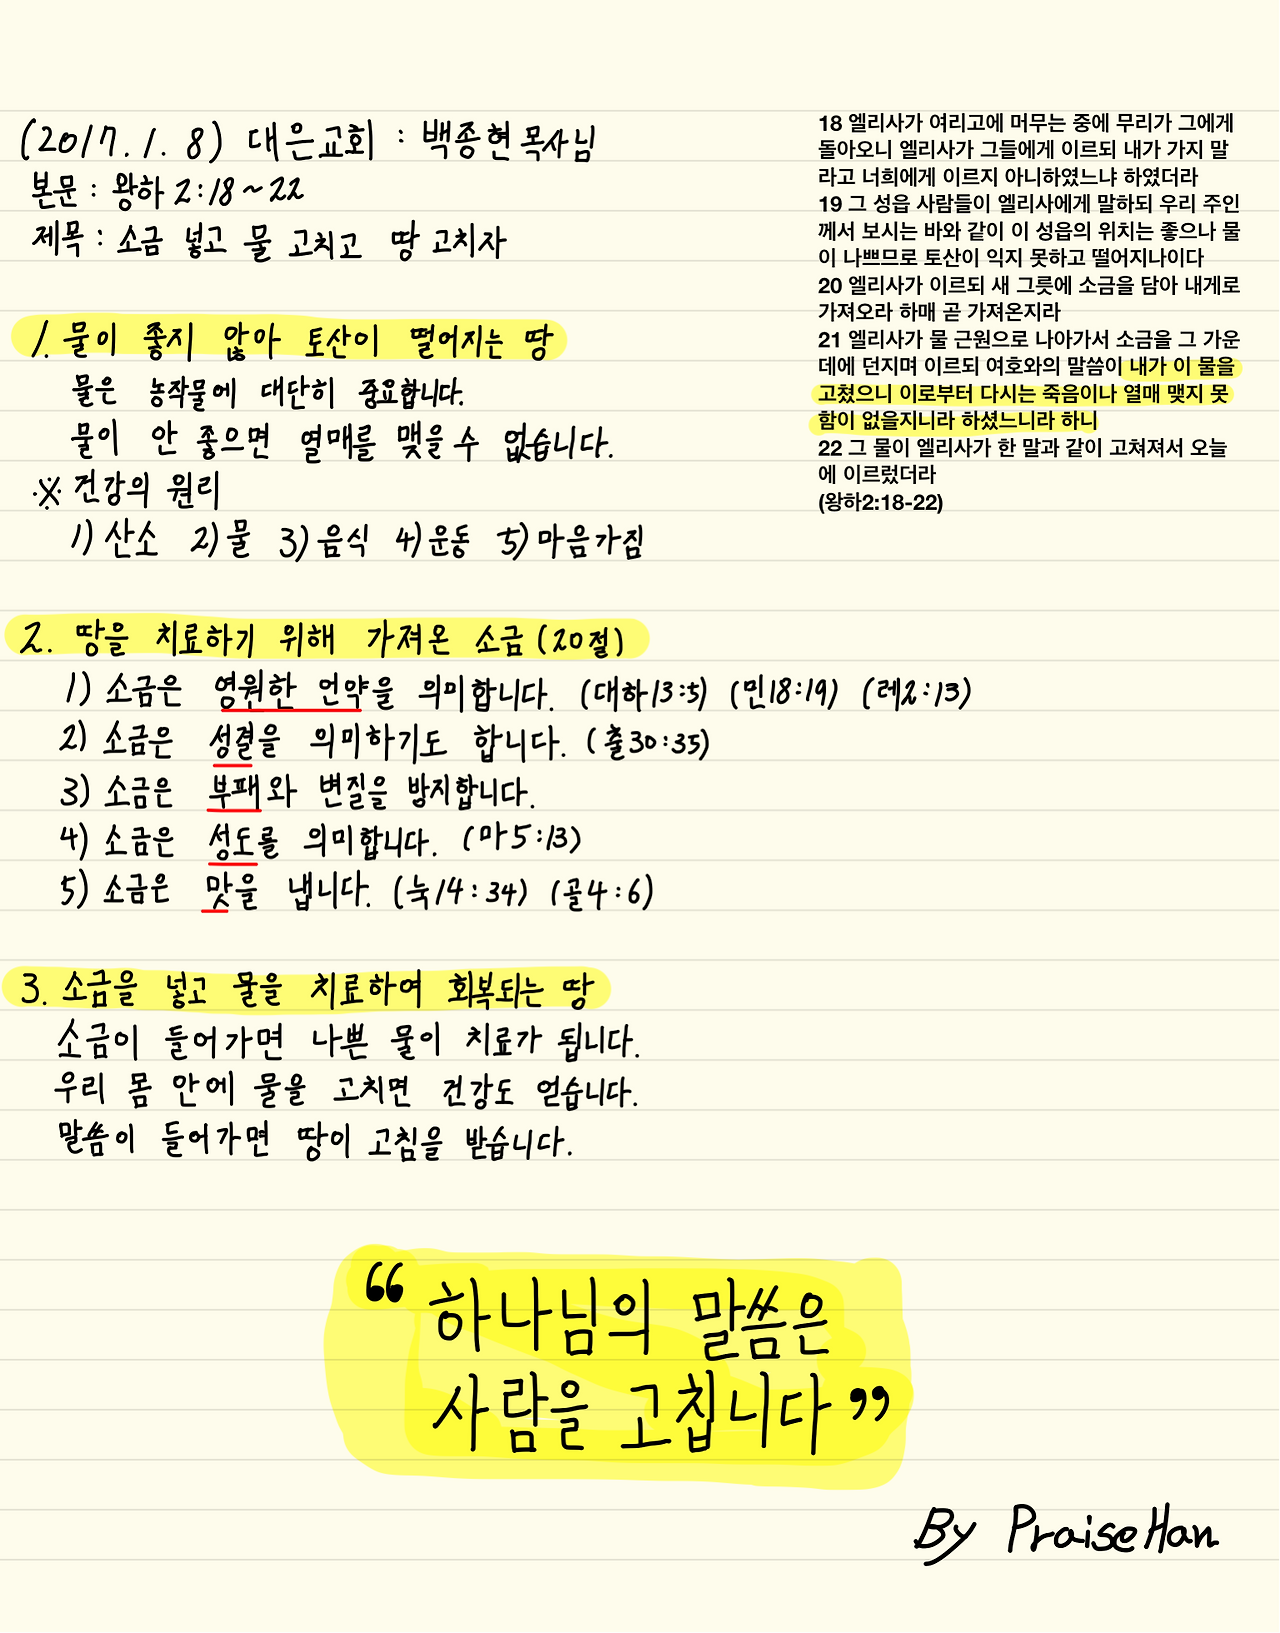 (2017.1.8) 대은교회 : 백종현목사님
본문 : 왕하 2:18~22
제목 : 소금 넣고 물 고치고 땅 고치자
1. 물이 좋지 않아 토산이 떨어지는 땅
물은 농작물에 대단히 중요합니다.
물이 안 좋으면 열매를 맺을 수 없습니다.
※ 건강의 원리
1) 산소 2) 물 3) 음식 4) 운동 5) 마음가짐
2. 땅을 치료하기 위해 가져온 소금 (20절)
1) 소금은 영원한 언약을 의미합니다. (대하13:5) (민18:19) (레2:13)
2) 소금은 성결을 의미하기도 합니다. (출30:35)
3) 소금은 부패와 변질을 방지합니다.
4) 소금은 성도를 의미합니다. (마5:13)
5) 소금은 맛을 냅니다. (눅14:34) (골4:6)
3. 소금을 넣고 물을 치료하여 회복되는 땅
소금이 들어가면 나쁜 물이 치료가 됩니다.
우리 몸 안에 물을 고치면 건강도 얻습니다.
말씀이 들어가면 땅이 고침을 받습니다.
“하나님의 말씀은
사람을 고칩니다”
By PraiseHan
18 엘리사가 여리고에 머무는 중에 무리가 그에게
돌아오니 엘리사가 그들에게 이르되 내가 가지 말
라고 너희에게 이르지 아니하였느냐 하였더라
19 그 성읍 사람들이 엘리사에게 말하되 우리 주인
께서 보시는 바와 같이 이 성읍의 위치는 좋으나 물
이 나쁘므로 토산이 익지 못하고 떨어지나이다
20 엘리사가 이르되 새 그릇에 소금을 담아 내게로
가져오라 하매 곧 가져온지라
21 엘리사가 물 근원으로 나아가서 소금을 그 가운
데에 던지며 이르되 여호와의 말씀이 내가 이 물을
고쳤으니 이로부터 다시는 죽음이나 열매 맺지 못
함이 없을지니라 하셨느니라 하니
22 그 물이 엘리사가 한 말과 같이 고쳐져서 오늘
에 이르렀더라
(왕하2:18-22)